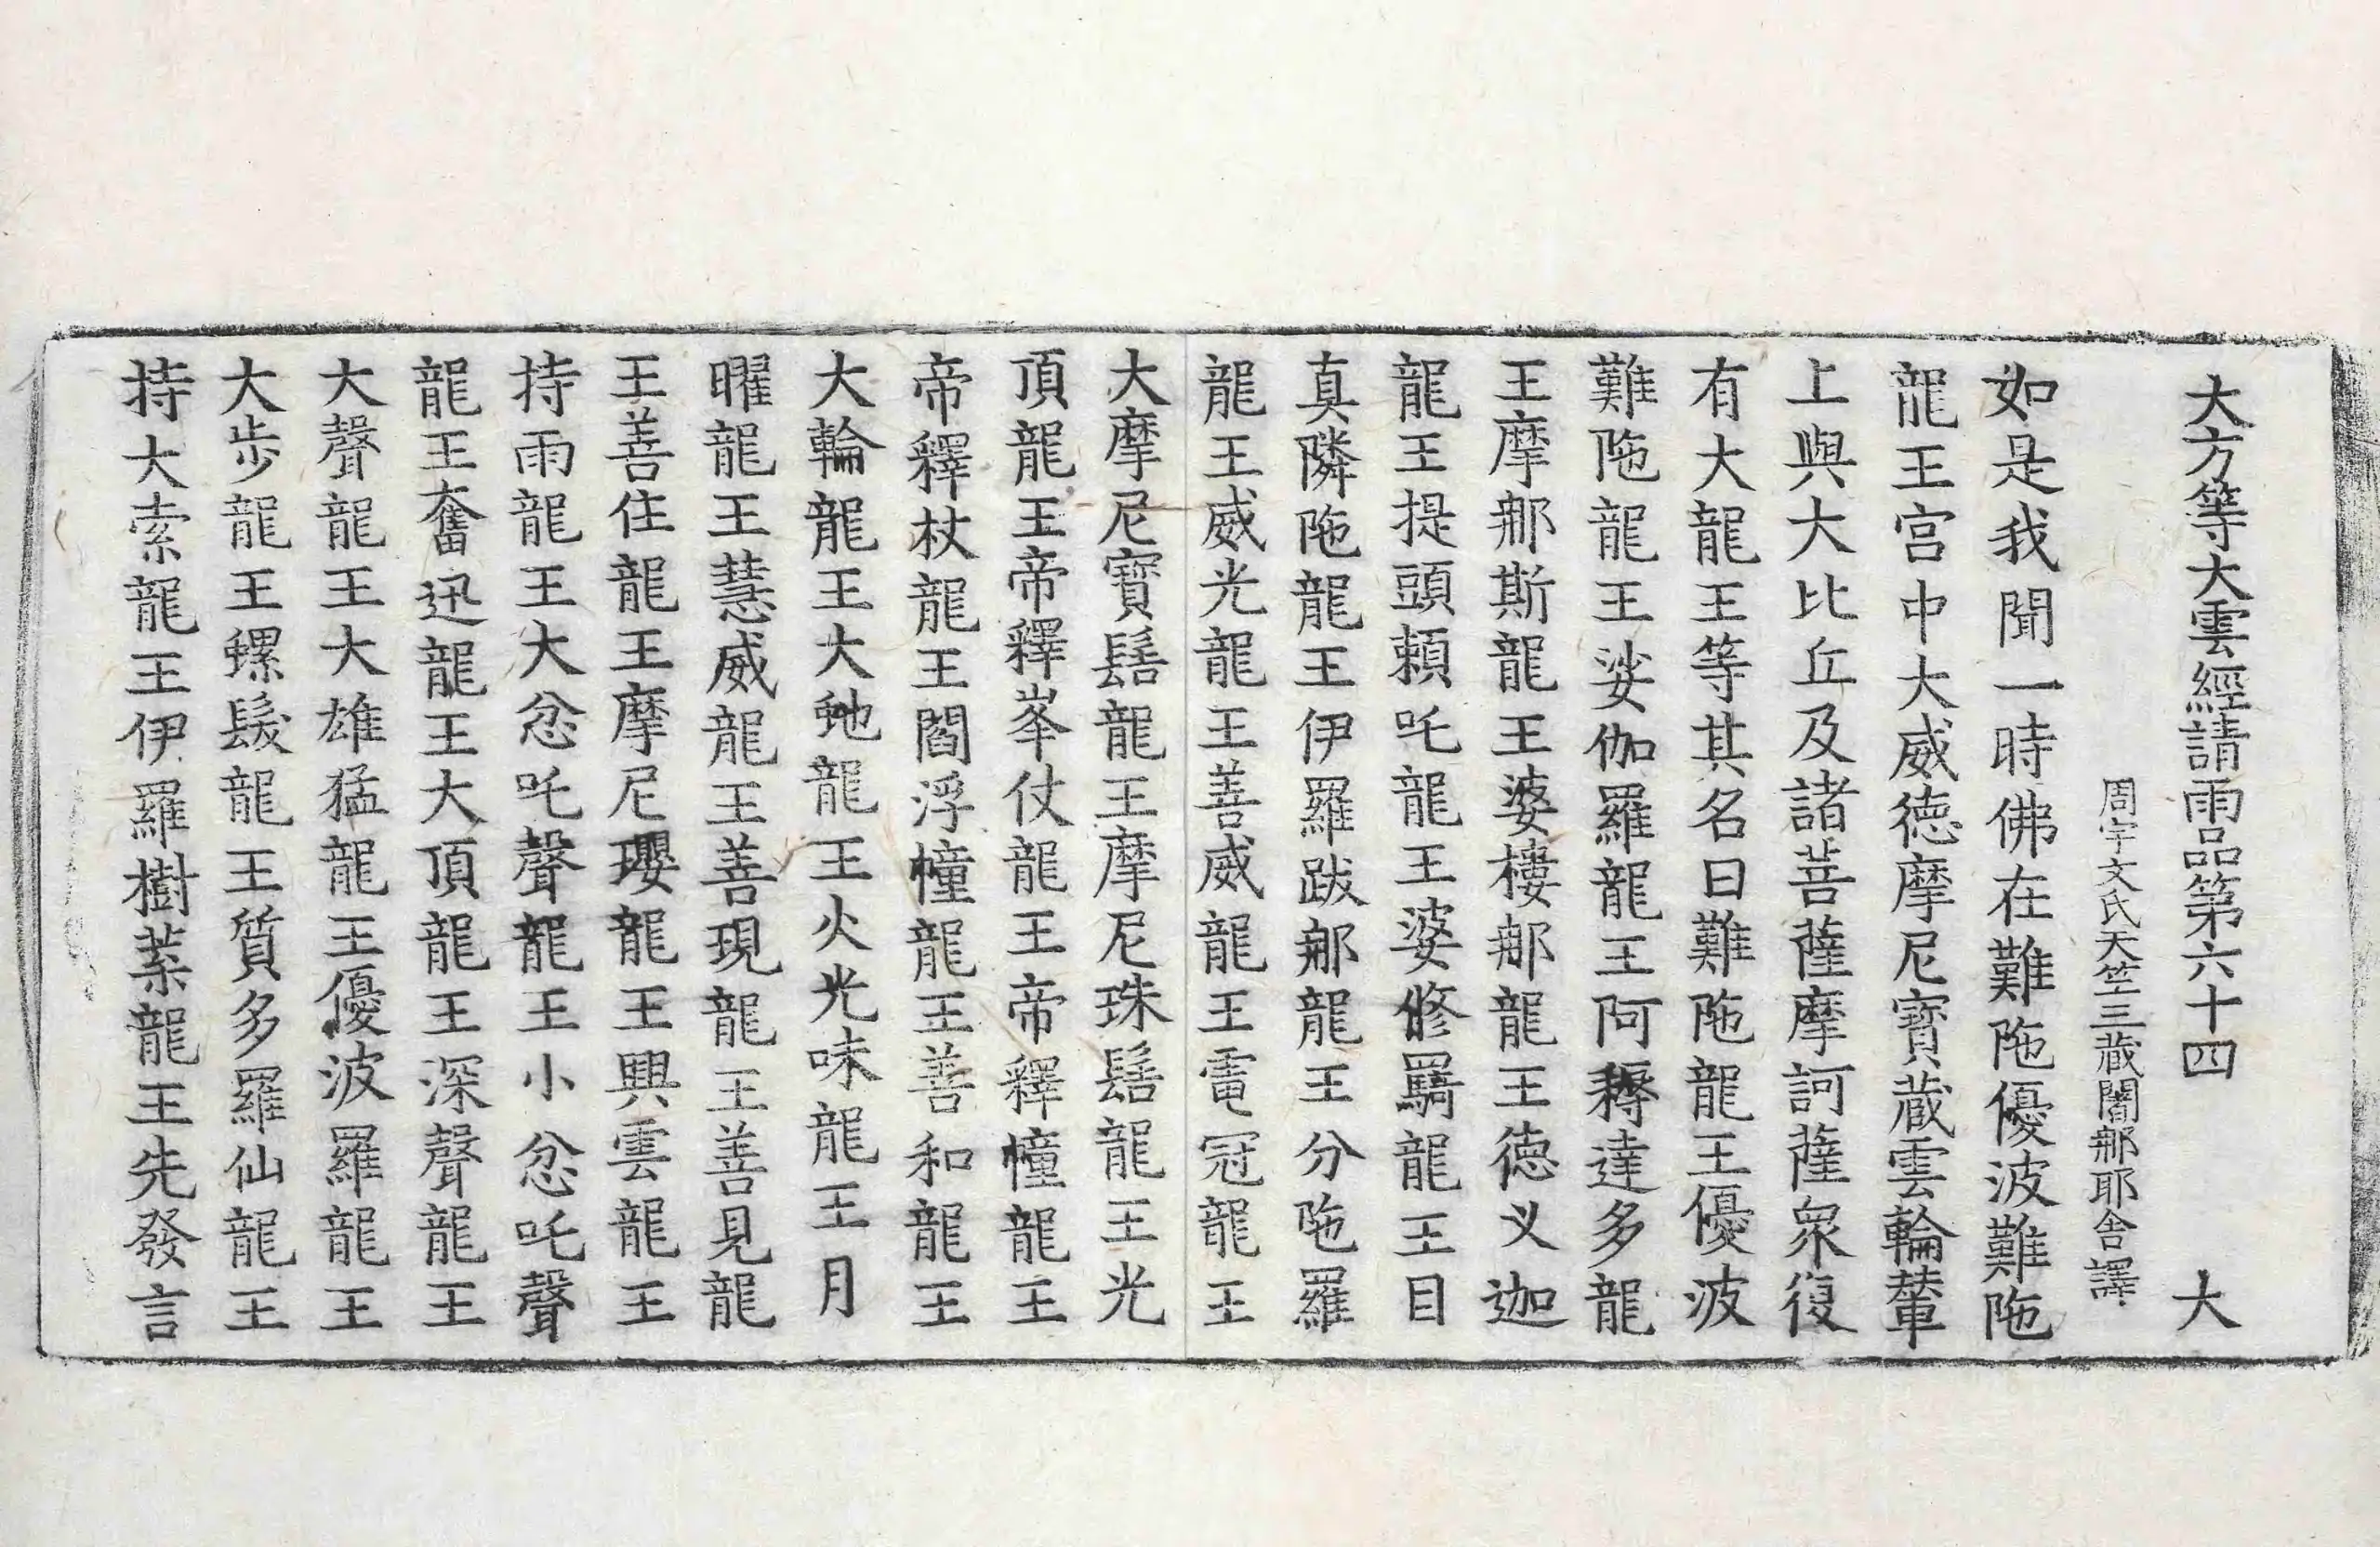 大方等大雲經請雨品第六十四 大
周宇文氏天竺三藏闍那耶舍譯
如是我聞一時佛在難陁優波難陁
龍王宫中大威徳摩尼寶蔵雲輪輦
上與大比丘及諸菩薩摩訶薩衆復
有大龍王等其名曰難陁龍王優波
難陁龍王娑伽羅龍王阿耨達多龍
王摩那斯龍王婆樓那龍王徳义迦
龍王提頭頼吒龍王婆修羇龍王目
真隣陁龍王伊羅跋那龍王分陁羅
龍王威光龍王善威龍王雷冠龍王
大摩尼寶髻龍王摩尼珠髻龍王光
頂龍王帝釋峯仗龍王帝釋幢龍王
帝釋杖龍王閻浮幢龍王善和龍王
大輪龍王大虵龍王火光味龍王月
曜龍王慧威龍王善現龍王善見龍
王善住龍王摩尼瓔龍王興雲龍王
持雨龍王大忿吒聲龍王小忿吒聲
龍王奮迅龍王大頂龍王深聲龍王
大聲龍王大雄猛龍王優波羅龍王
大步龍王螺髮龍王質多羅仙龍王
持大索龍王伊羅樹葉龍王先發言